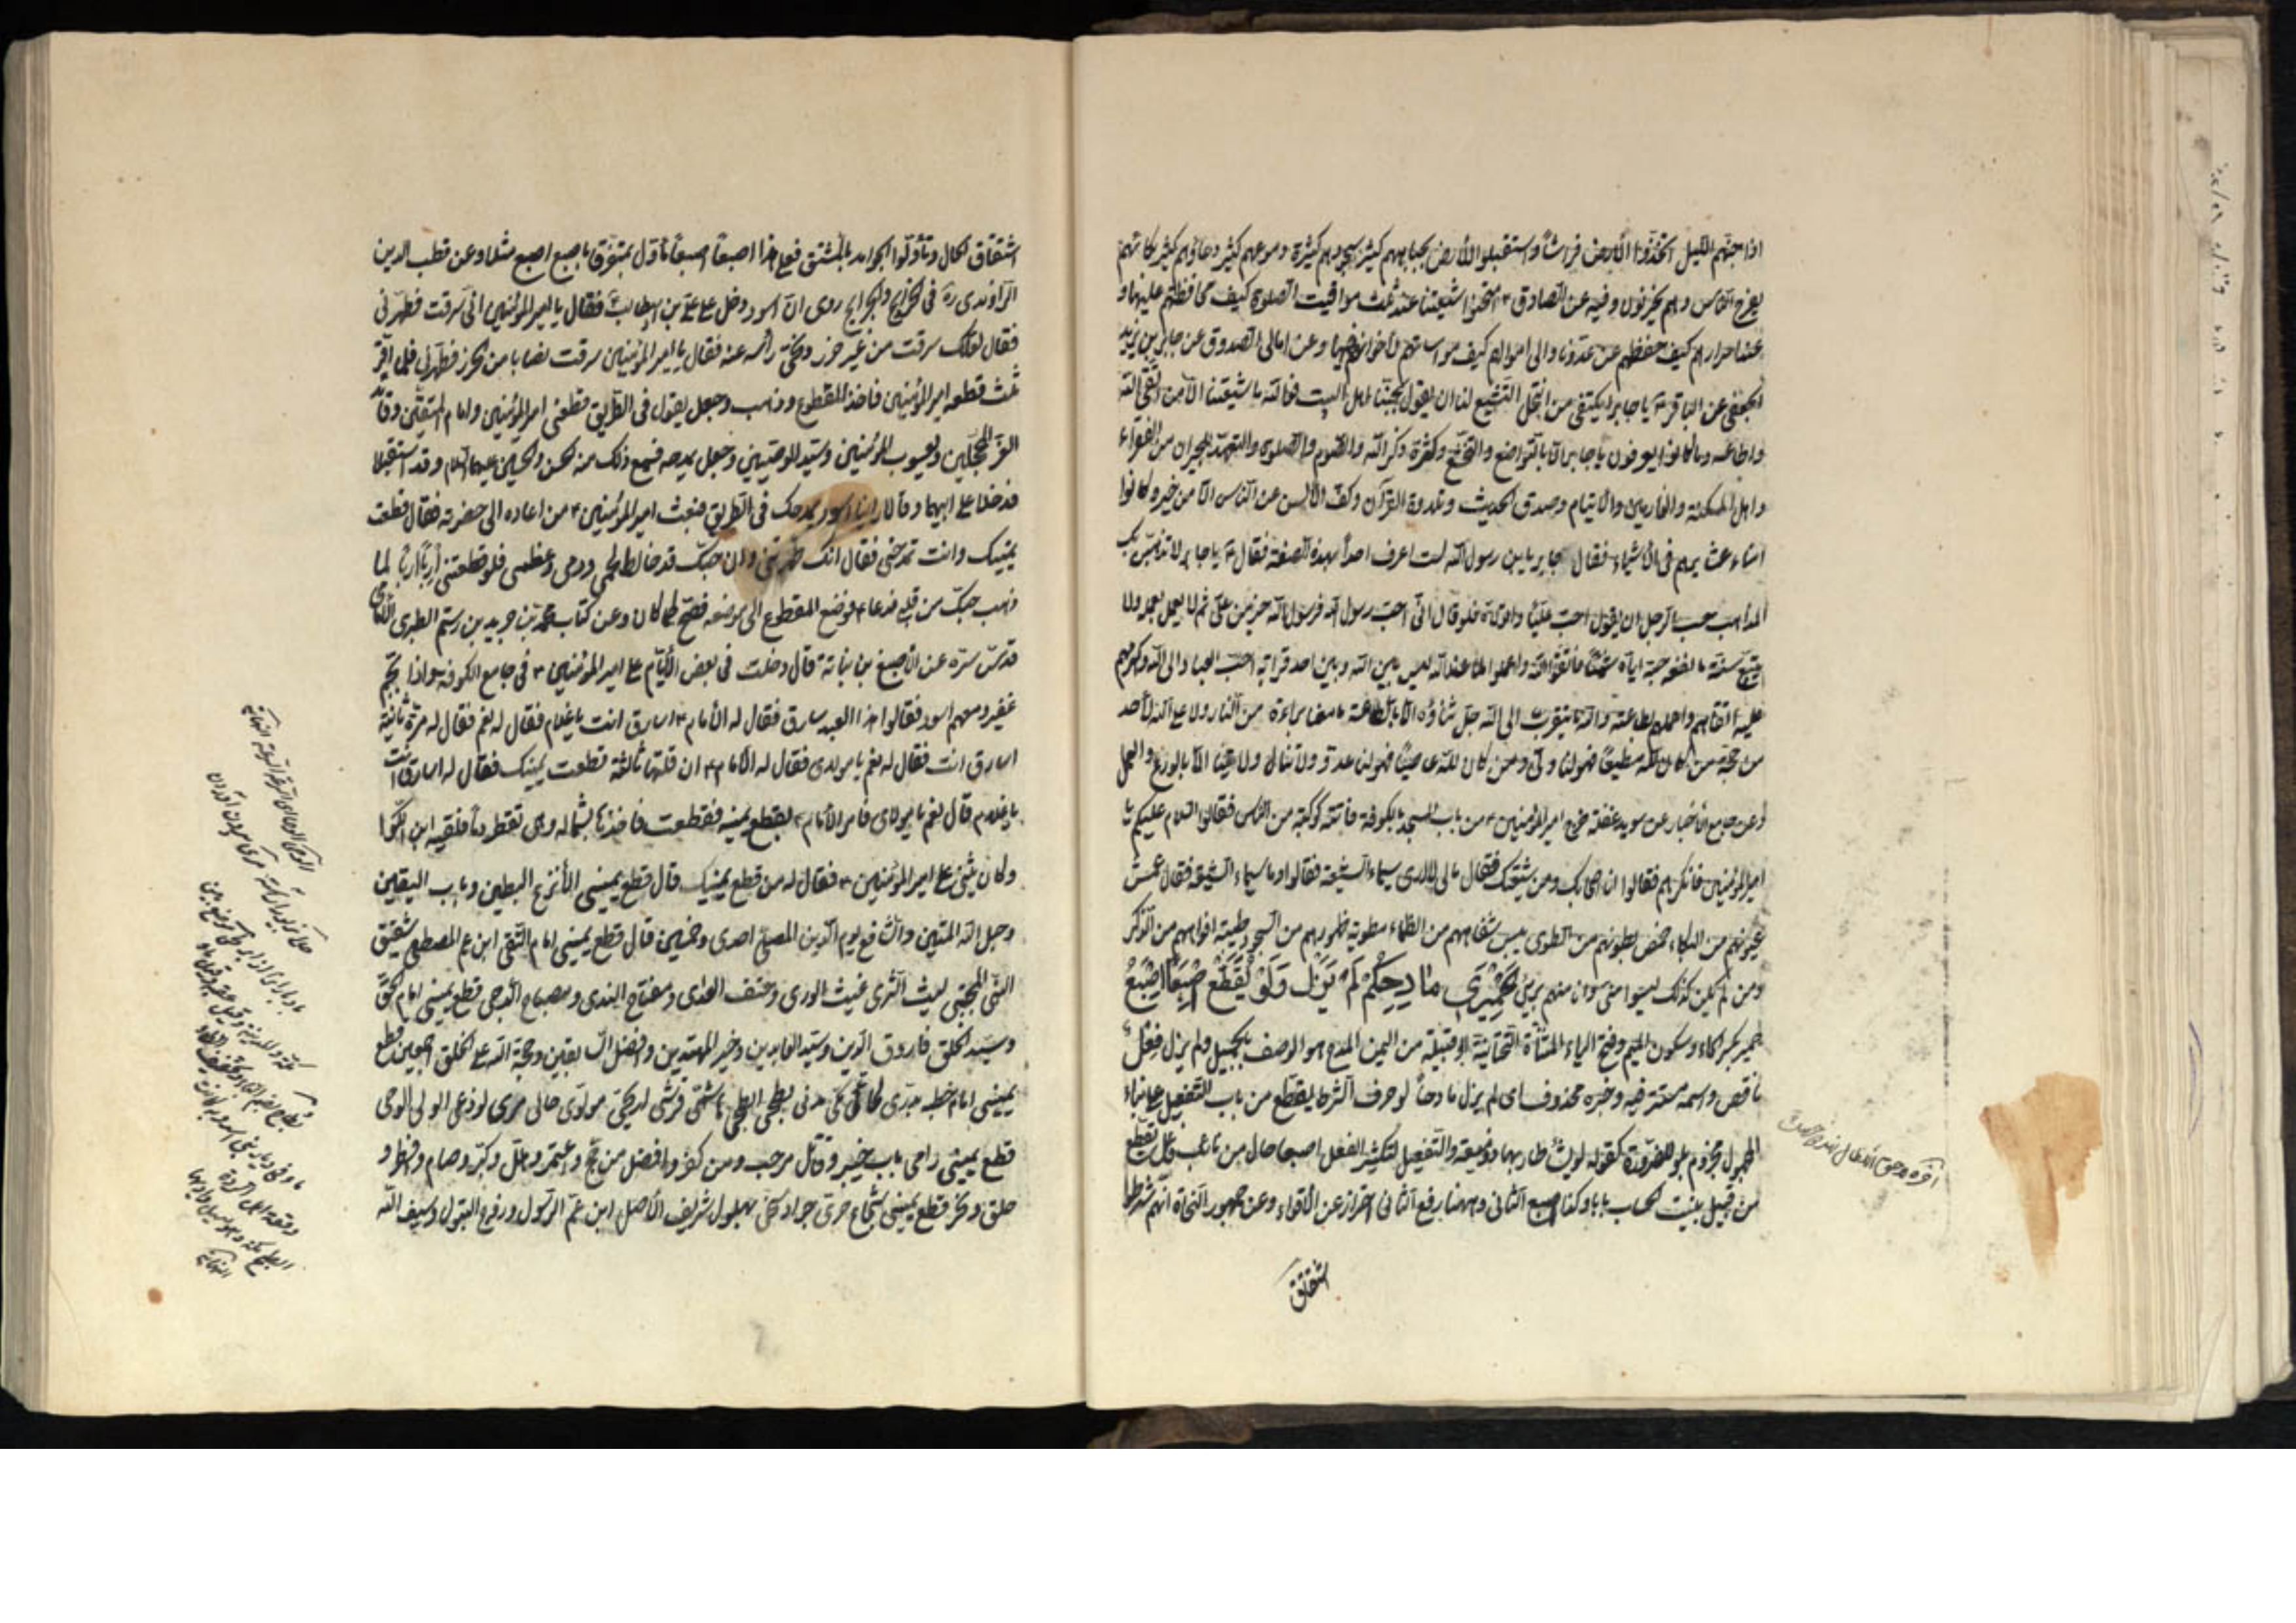 اذا جنهم الليل اتخذوا الارض فراشاً واستقبلوا الأرض بجباههم كثيرة سجودهم كثيرة دموعهم كثير دعاؤهم كثير بكائهم
يفرح الناس وهم يحزنون وفيه عن الصادق ع امتحنوا شيعتنا عند ثلث مواقيت الصلوة كيف محافظتهم عليها و
عند اسرارهم كيف حفظهم عن عدونا والى اموالهم كيف مواساتهم لأخوانهم فيها وعن امالى الصدوق عن جابر بن يزيد
الجعفى عن الباقر ع يا جابر ايكتفى من انتحل التشيع لنا ان يقول بحبنا اهل البيت فوالله ما شيعتنا الا من اتقى الله
واطاعه وما كانوا يعرفون يا جابر الا بالتواضع والتخشع وكثرة ذكر الله والصوم والصلوة والتعهد للجيران من الفقراء
واهل المسكنة والغارمين والأيتام وصدق الحديث وتلاوة القرآن وكف الألسن عن الناس الا من خير وكانوا
امناء عشايرهم فى الأشياء فقال جابر يابن رسول الله لست اعرف احداً بهذه الصفة فقال ع يا جابر لا تذهبن بك
المذاهب حسب الرجل ان يقول احب علياً واتولاه فلو قال انى احب رسول الله فرسول الله خير من على ثم لا يعمل بعمله ولا
يتبع سنته ما نفعه حبه اياه شيئاً فاتقوا الله واعملوا لما عند الله ليس بين الله وبين احد قرابة احب العباد الى الله واكرمهم
عليه اتقاهم واعملهم بطاعته والله ما يتقرب الى الله جل ثناؤه الا بالطاعة ما معنا براءة من النار ولا على الله لأحد
من حجة من كان لله مطيعاً فهو لنا ولى ومن كان لله عاصياً فهو لنا عدو ولا تنال ولايتنا الا بالورع والعمل
وعن جامع الأخبار عن سويد غفلة خرج امير المؤمنين ع من باب المسجد بالكوفة فأتته كوكبة من الناس فقالوا السلام عليكم يا
امير المؤمنين فانكرهم فقالوا ان اصحابك ومن شيعتك فقال مالى لا ارى سيماء الشيعة فقالوا وما سيماء الشيعة فقال عمش
عيونهم من البكاء خمص بطونهم من الطوى يبس شفاههم من الظماء مطوية ظهورهم من السجود طيبة افواههم من الذكر
ومن لم يكن كذلك ليسوا منى وان منهم برىء حِمْيَرِى مَادِحُكُمْ لَمْ يَزَلْ وَلَوْ يُقَطَّعْ اصْبَعاً اصْبَعُ
حمير بكسر الحاء وسكون الميم وفتح الياء المثناة التحتانية ابو قبيلة من اليمن المدح هو الوصف بالجميل ولم يزل فعل
ناقص واسمه مستتر فيه وخبره محذوف اى لم يزل مادحاً لو حرف الشرط يقطع من باب التفعيل على بناء
المجهول مجزوم بلو للضرورة كقوله لو يشأ طار بها ذو ميعة والتفعيل لتكثير الفعل اصبعا حال من نائب فاعل يقطع
من قبيل بينت الحساب بابا وكذا اصبع الثانى وههنا رفع الثانى احتراز عن الأقواء وعن جمهور النحاة انهم شرطوا
اشتقاق
اشتقاق الحال وتأولوا الجوامد بالمشتق فعلى هذا اصبعاً اصبعاً مأول بمتفرق باصبع اصبع مثلا وعن قطب الدين
الراوندى ره فى الخرايج والجرايح روى ان اسود دخل على على بن ابيطالب ع فقال يا امير المؤمنين انى سرقت فطهرنى
فقال لعلك سرقت من غير حرز ونحى رأسه عنه فقال يا امير المؤمنين سرقت نصابا من الحرز فطهرنى فلما اقر
ثلث قطعه امير المؤمنين فاخذ المقطوع وذهب وجعل يقول فى الطريق قطعنى امير المؤمنين وامام المتقين وقائد
الغر المحجلين ويعسوب المؤمنين وسيد الوصيين وجعل يمدحه فسمع ذلك منه الحسن والحسين عليهما السلام وقد استقبلا
فدخلا على ابيهما وقالا رأينا اسود يمدحك فى الطريق فبعث امير المؤمنين ع من اعاده الى حضرته فقال قطعت
يمينك وانت تمدحنى فقال انك طهرتنى وان حبك قد خالط لحمى ودمى وعظمى فلو قطعتنى ارباً ارباً لما
ذهب حبك من قلبى فدعا ع ووضع المقطوع الى موضعه فصح كما كان وعن كتاب محمد بن جرير بن رستم الطبرى الامامى
قدس سره عن الأصبغ بن نباتة قال دخلت فى بعض الأيام على امير المؤمنين ع فى جامع الكوفة واذا بجم
غفير ومعهم اسود فقالوا هذا العبد سارق فقال له الأمام ع اسارق انت يا غلام فقال له نعم فقال له مرة ثانية
اسارق انت فقال له نعم يا مولاى فقال له الأمام ع ان قلتها ثالثة قطعت يمينك فقال له اسارق انت
يا غلام قال نعم يا مولاى فامر الأمام ع بقطع يمينه فقطعت فاخذها بشماله وهى تقطر دماً فلقيه ابن الكوا
وكان يشنى على امير المؤمنين ع فقال له من قطع يمينك قال قطع يمينى الأنزع البطين وباب اليقين
وحبل الله المتين والشافع يوم الدين المصلى احدى وخمسين قال قطع يمينى امام التقى ابن عم المصطفى شقيق
النبى المجتبى ليث الثرى غيث الورى وحتف العدى ومفتاح الندى ومصباح الدجى قطع يمينى امام الحق
وسيد الخلق فاروق الدين وسيد العابدين وخير المهتدين وافضل السابقين وحجة الله على الخلق اجمعين قطع
يمينى امام خطه بدرى مكى مدنى ابطحى هاشمى قرشى اريحى مولوى طالبى جرى لوذعى الولى الوصى
قطع يمينى داحى باب خيبر وقاتل مرحب ومن كفر وافضل من حج واعتمر وهلل وكبر وصام وافطر و
حلق ونحر قطع يمينى شجاع جرى جواد سخى بهلول شريف الأصل ابن عم الرسول وزوج البتول وسيف الله